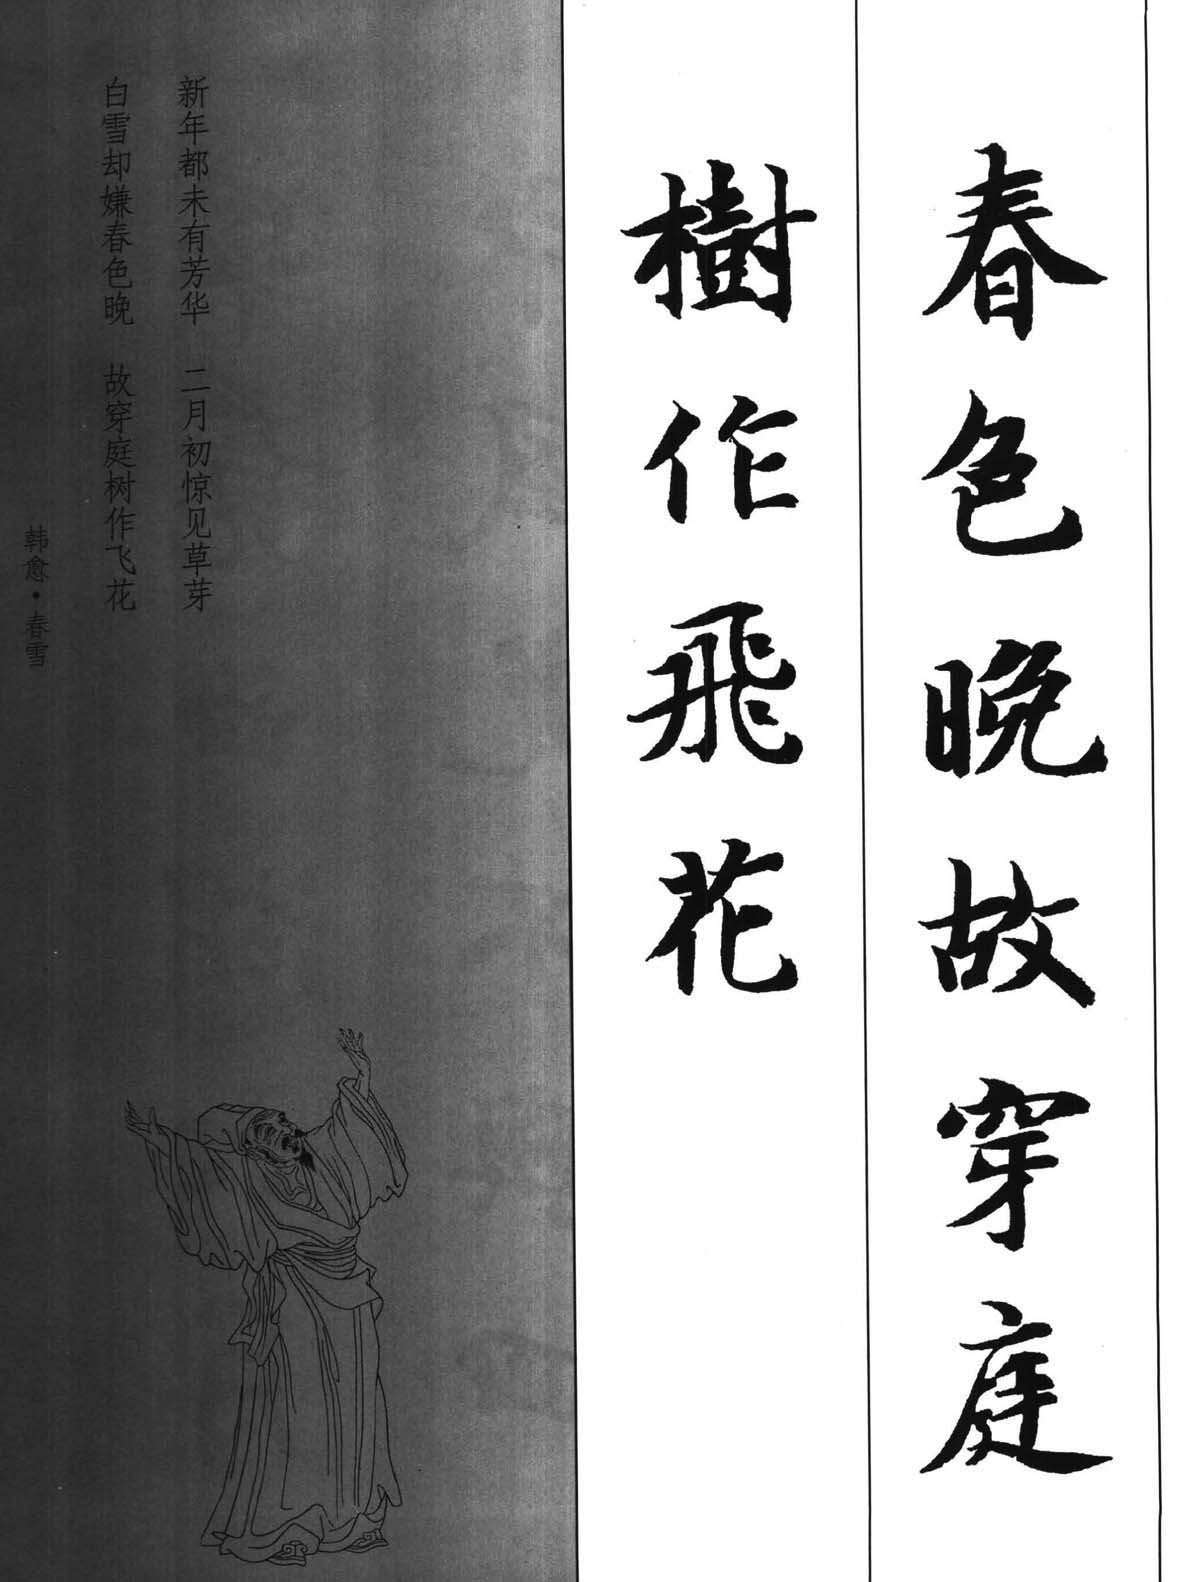 春色晚故穿庭
樹作飛花
新年都未有芳华 二月初惊见草芽
白雪却嫌春色晚 故穿庭树作飞花
韩愈·春雪